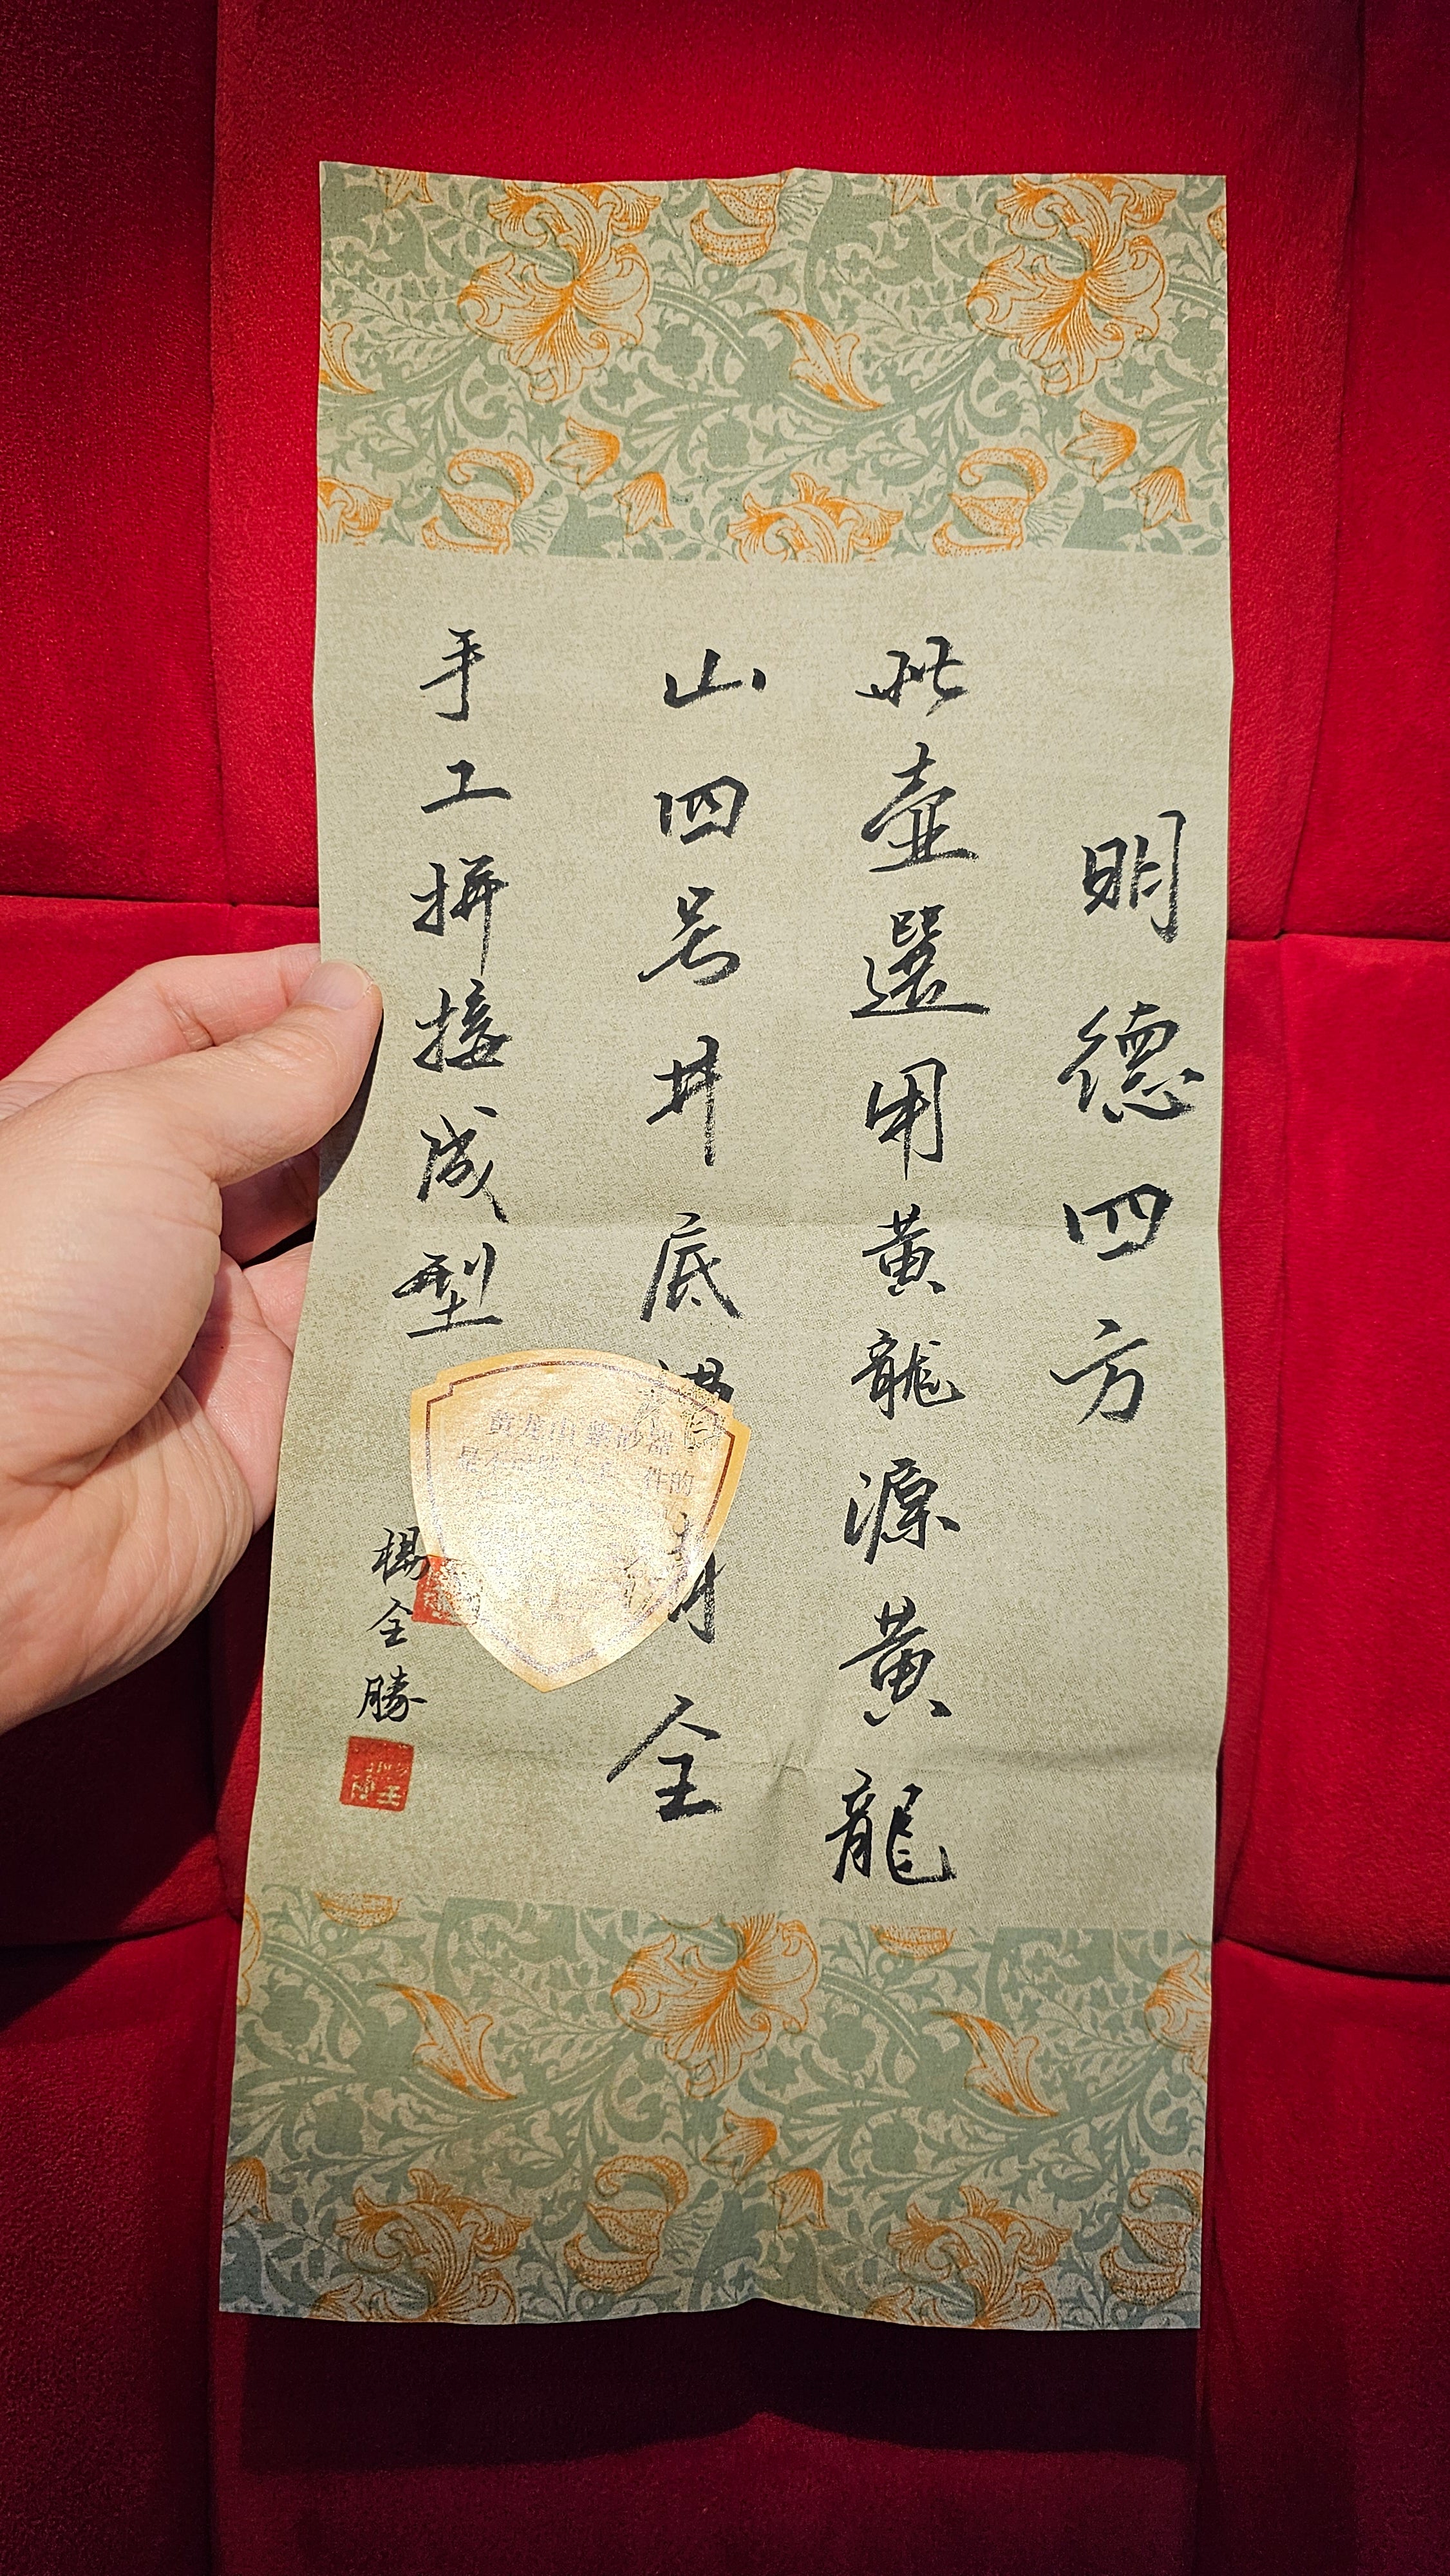 明德四方
此壺選用黄龍源黄龍
山四号井底
全
手工拼接成型
楊全勝